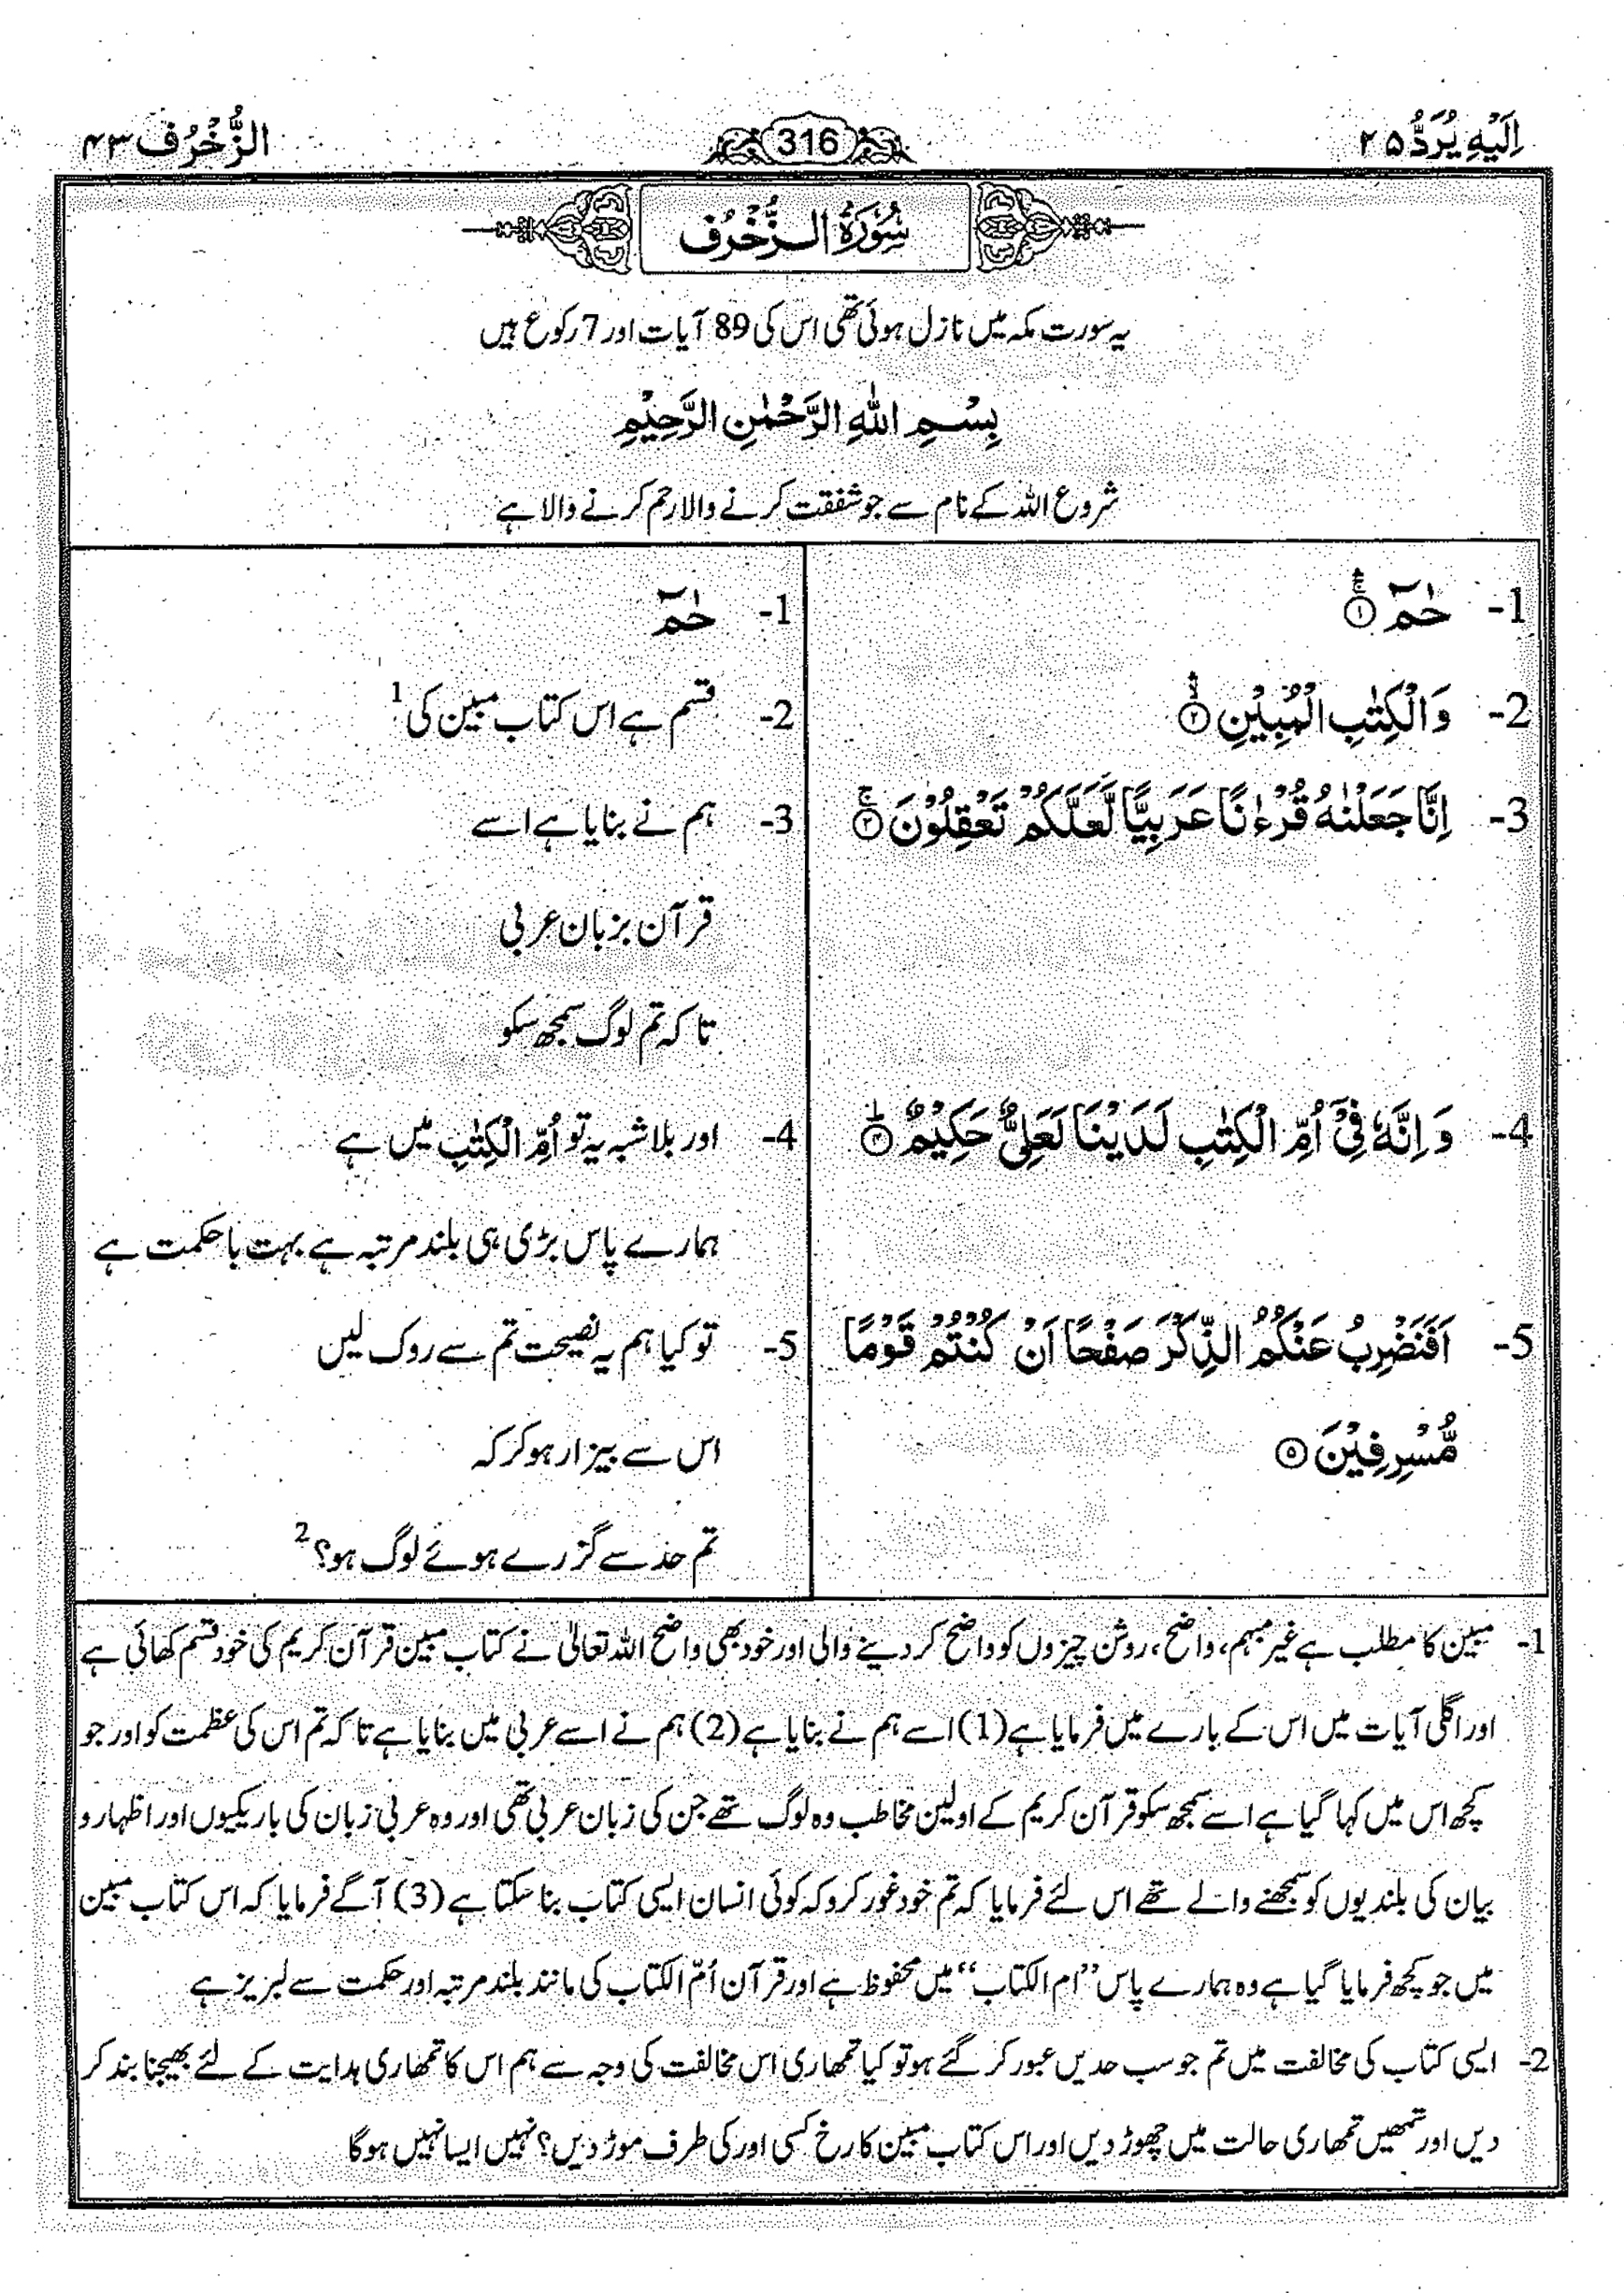 اِلَيْهِ يُرَدُّ ٢٥
316
الزُّخْرُف ٤٣
سُوْرَةُ الزُّخْرُف
یہ سورت مکہ میں نازل ہوئی تھی اس کی 89 آیات اور 7 رکوع ہیں
بِسْمِ اللّٰهِ الرَّحْمٰنِ الرَّحِيْمِ
شروع اللہ کے نام سے جو شفقت کرنے والا رحم کرنے والا ہے
1- حٰمٓ ۚۛ ①
2- وَالْكِتٰبِ الْمُبِيْنِ ۙۛ ②
3- اِنَّا جَعَلْنٰهُ قُرْءٰنًا عَرَبِيًّا لَّعَلَّكُمْ تَعْقِلُوْنَ ۚ ③
4- وَ اِنَّهٗ فِيْٓ اُمِّ الْكِتٰبِ لَدَيْنَا لَعَلِيٌّ حَكِيْمٌ ؕ ④
5- اَفَنَضْرِبُ عَنْكُمُ الذِّكْرَ صَفْحًا اَنْ كُنْتُمْ قَوْمًا
مُّسْرِفِيْنَ ⑤
1- حٰمٓ
2- قسم ہے اس کتاب مبین کی 1
3- ہم نے بنایا ہے اسے
قرآن بزبان عربی
تاکہ تم لوگ سمجھ سکو
4- اور بلاشبہ یہ تو اُمِّ الْكِتٰبِ میں ہے
ہمارے پاس بڑی ہی بلند مرتبہ ہے بہت با حکمت ہے
5- تو کیا ہم یہ نصیحت تم سے روک لیں
اس سے بیزار ہو کر کہ
تم حد سے گزرے ہوئے لوگ ہو؟ 2
1- مبین کا مطلب ہے غیر مبہم، واضح، روشن چیزوں کو واضح کر دینے والی اور خود بھی واضح اللہ تعالیٰ نے کتاب مبین قرآن کریم کی خود قسم کھائی ہے
اور اگلی آیات میں اس کے بارے میں فرمایا ہے (1) اسے ہم نے بنایا ہے (2) ہم نے اسے عربی میں بنایا ہے تا کہ تم اس کی عظمت کو اور جو
کچھ اس میں کہا گیا ہے اسے سمجھ سکو قرآن کریم کے اولین مخاطب وہ لوگ تھے جن کی زبان عربی تھی اور وہ عربی زبان کی باریکیوں اور اظہار و
بیان کی بلندیوں کو سمجھنے والے تھے اس لئے فرمایا کہ تم خود غور کرو کہ کوئی انسان ایسی کتاب بنا سکتا ہے (3) آگے فرمایا کہ اس کتاب مبین
میں جو کچھ فرمایا گیا ہے وہ ہمارے پاس ”ام الکتاب“ میں محفوظ ہے اور قرآن اُمّ الکتاب کی مانند بلند مرتبہ اور حکمت سے لبریز ہے
2- ایسی کتاب کی مخالفت میں تم جو سب حدیں عبور کر گئے ہو تو کیا تمھاری اس مخالفت کی وجہ سے ہم اس کا تمھاری ہدایت کے لئے بھیجنا بند کر
دیں اور تمھیں تمھاری حالت میں چھوڑ دیں اور اس کتاب مبین کا رخ کسی اور کی طرف موڑ دیں؟ نہیں ایسا نہیں ہوگا